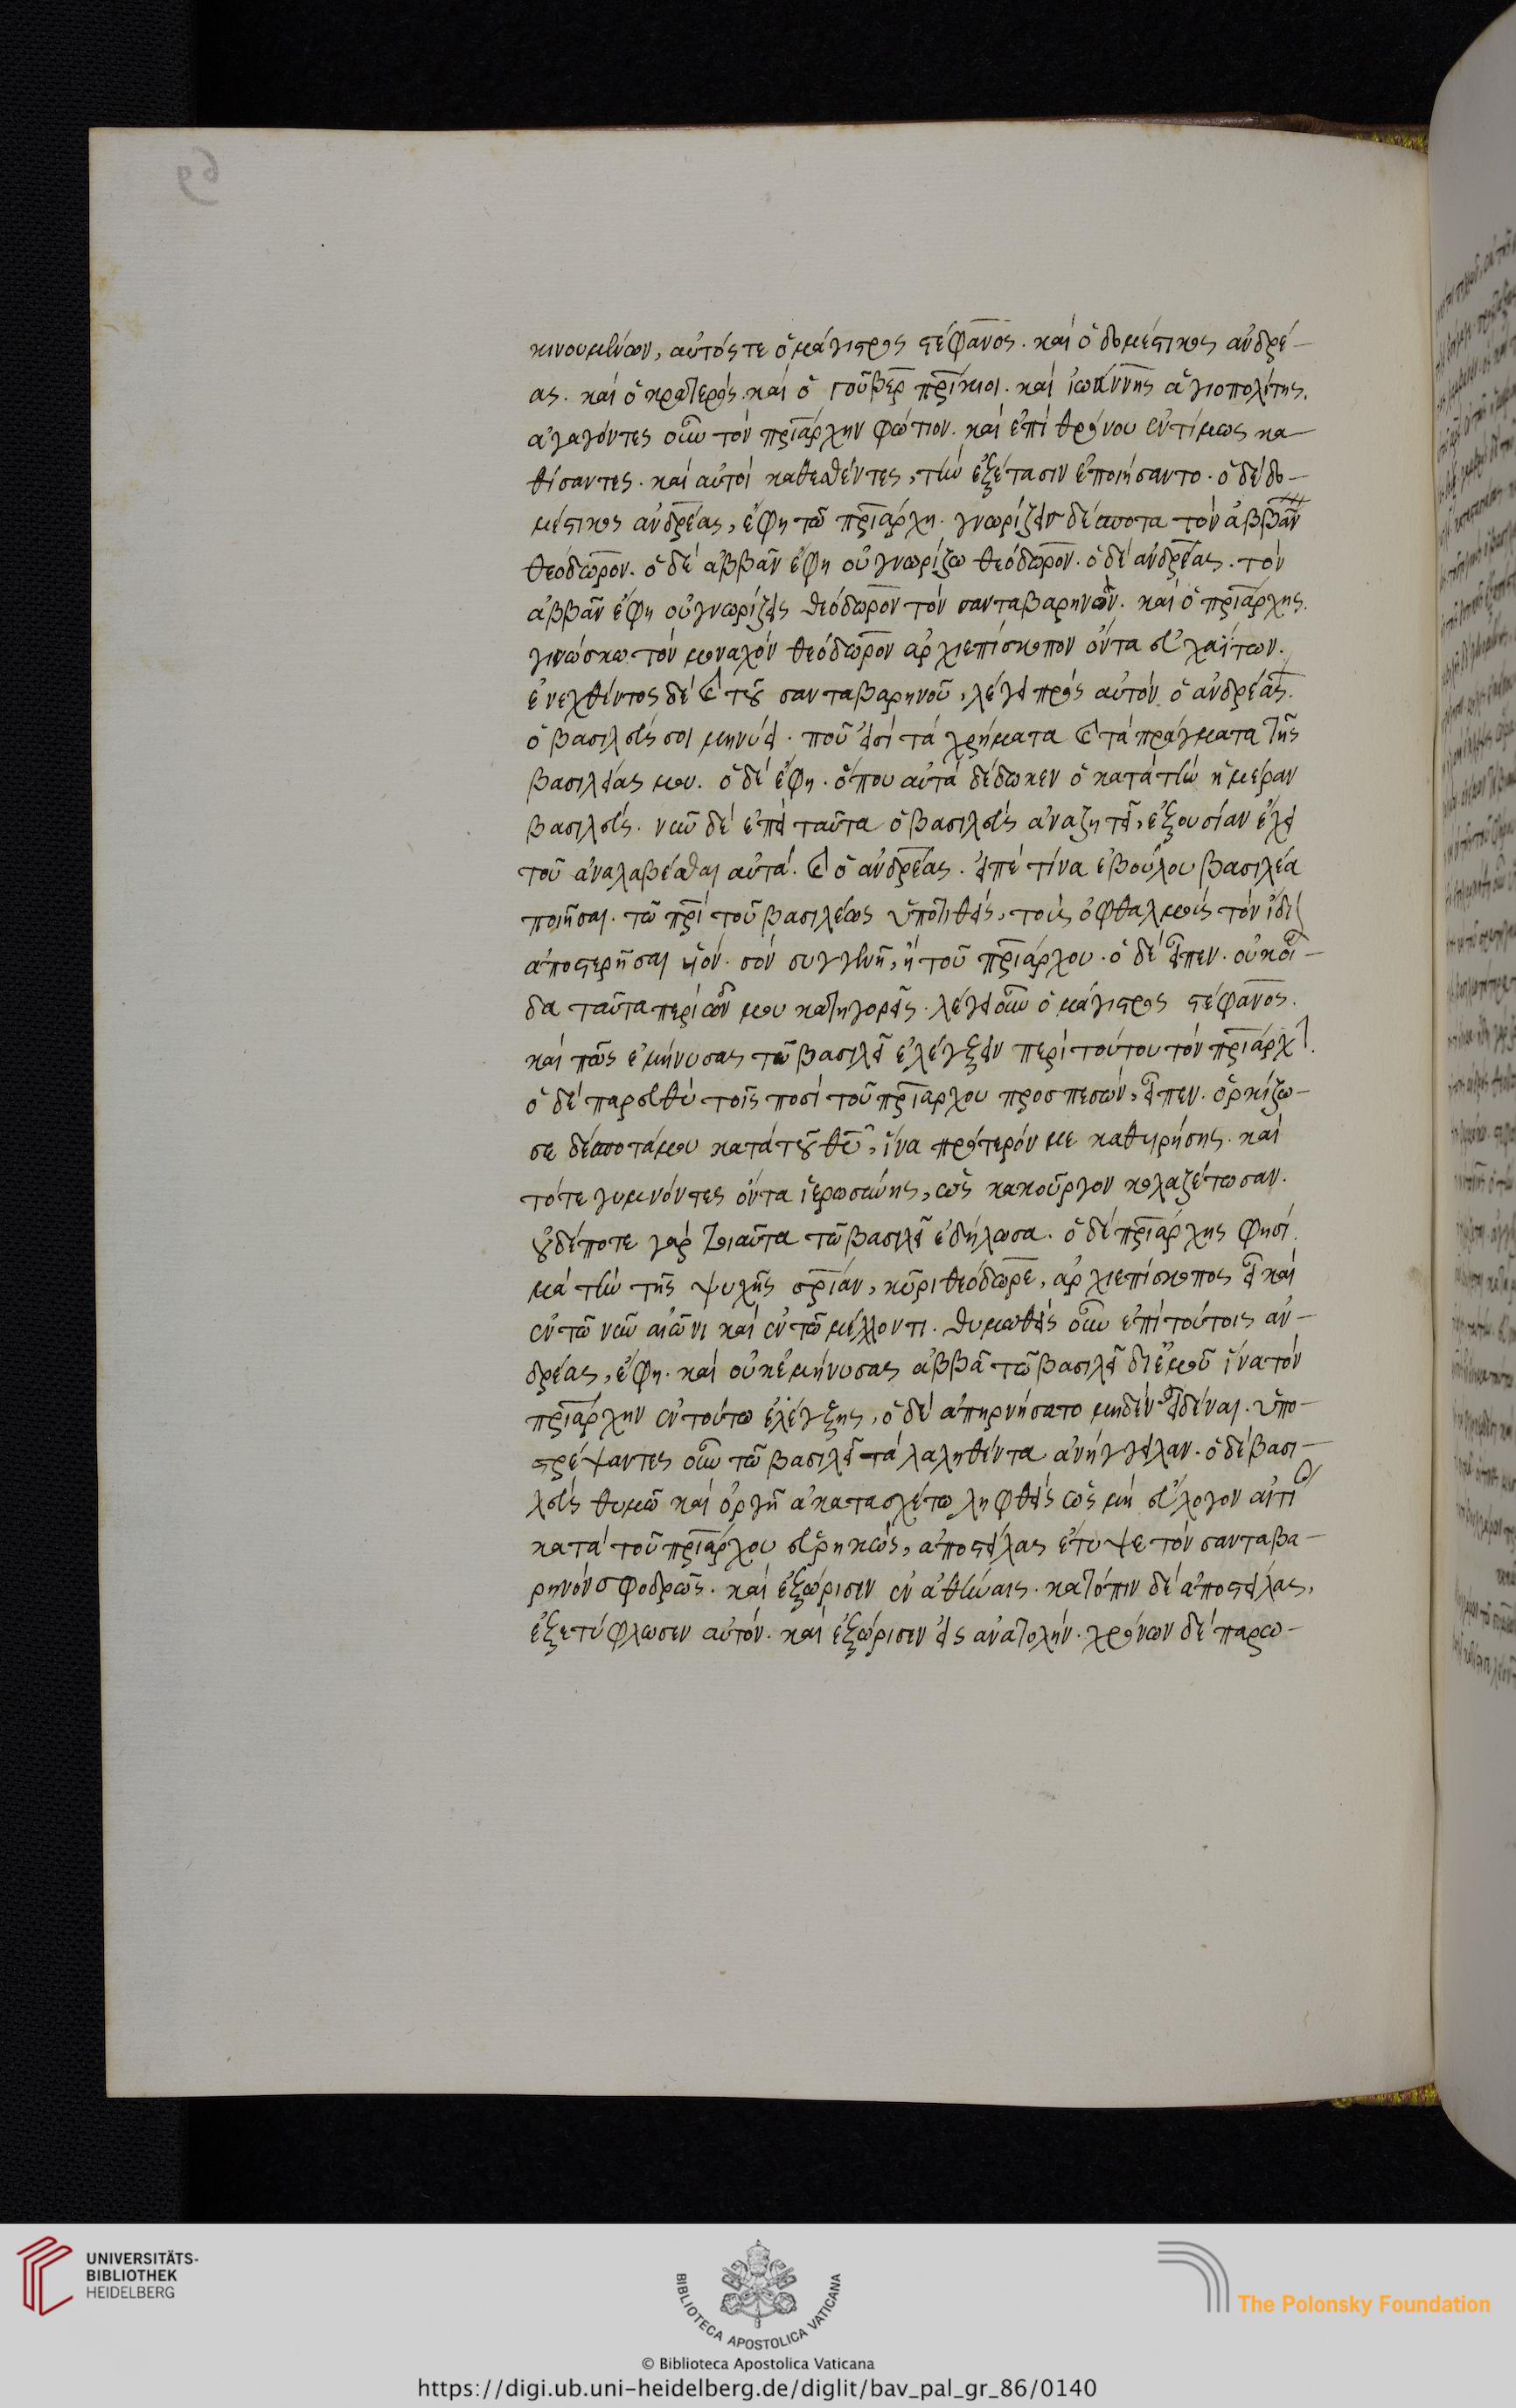 69
κινουμένων, αὐτός τε ὁ μάγιστρος στέφανος. καὶ ὁ δομέστικος ἀνδρέ-
ας. καὶ ὁ κρατερός. καὶ ὁ γούβερ πρίκιοι. καὶ ἰωάννης ἁγιοπολίτης.
ἀγαγόντες οὖν τὸν πριάρχην φώτιον. καὶ ἐπὶ θρόνου ἐντίμως κα-
θίσαντες. καὶ αὐτοὶ καθεσθέντες, τὴν ἐξέτασιν ἐποιήσαντο. ὁ δὲ δο-
μέστικος ἀνδρέας, ἔφη τῶ πριάρχη. γνωρίζεις δέσποτα τὸν ἀββᾶν
θεόδωρον. ὁ δὲ ἀββᾶν ἔφη οὐ γνωρίζω θεόδωρον. ὁ δὲ ἀνδρέας. τὸν
ἀββᾶν ἔφη οὐ γνωρίζεις θεόδωρον τὸν σανταβαρηνόν. καὶ ὁ πριάρχης.
γινώσκω τὸν μοναχὸν θεόδωρον ἀρχιεπίσκοπον ὄντα εὐχαΐτων.
ἐνεχθέντος δὲ καὶ τοῦ σανταβαρηνοῦ, λέγει πρὸς αὐτὸν ὁ ἀνδρέας.
ὁ βασιλεύς σοι μηνύει. ποῦ εἰσὶ τὰ χρήματα καὶ τὰ πράγματα τῆς
βασιλείας μου. ὁ δὲ ἔφη. ὅπου αὐτὰ δέδωκεν ὁ κατὰ τὴν ἡμέραν
βασιλεύς. νῦν δὲ ἐπεὶ ταῦτα ὁ βασιλεὺς ἀναζητεῖ, ἐξουσίαν ἔχει
τοῦ ἀναλαβέσθαι αὐτά. καὶ ὁ ἀνδρέας. εἰπὲ τίνα ἐβούλου βασιλέα
ποιῆσαι. τῶ πρὶ τοῦ βασιλέως ὑποτιθείς, τοὺς ὀφθαλμοὺς τὸν ἴδι
ἀποστερῆσαι υἱόν. σὸν συγγενῆ, ἢ τοῦ πριάρχου. ὁ δὲ εἶπεν. οὐκ οἶ-
δα ταῦτα περὶ ὧν μου κατηγορεῖς. λέγει οὖν ὁ μάγιστρος στέφανος.
καὶ πῶς ἐμήνυσας τῶ βασιλεῖ ἐλέγξειν περὶ τούτου τὸν πριάρχ.
ὁ δὲ παρευθὺ τοῖς ποσὶ τοῦ πριάρχου προσπεσών, εἶπεν. ὁρκίζω-
σε δέσποτά μου κατὰ τοῦ θυ, ἵνα πρότερόν με καθαιρήσης. καὶ
τότε γυμνόντες ὄντα ἱερωσύνης, ὡς κακοῦργον κολαζέτωσαν.
οὐδέποτε γὰρ τοιαῦτα τῶ βασιλεῖ ἐδήλωσα. ὁ δὲ πριάρχης φησί.
μὰ τὴν τῆς ψυχῆς σρίαν, κῦρι θεόδωρε, ἀρχιεπίσκοπος εἶ καὶ
ἐν τῶ νῦν αἰῶνι καὶ ἐν τῶ μέλλοντι. θυμωθεὶς οὖν ἐπὶ τούτοις ἀν-
δρέας, ἔφη. καὶ οὐκ ἐμήνυσας ἀββᾶ τῶ βασιλεῖ δι' ἐμοῦ ἵνα τὸν
πριάρχην ἐν τούτω ἐλέγξης, ὁ δὲ ἀπηρνήσατο μηδὲν εἰδέναι. ὑπο-
στρέψαντες οὖν τῶ βασιλεῖ τὰ λαληθέντα ἀνήγγειλαν. ὁ δὲ βασι-
λεὺς θυμῶ καὶ ὀργῆ ἀκατασχέτω ληφθεὶς ὡς μὴ εὔλογον αἰτί
κατὰ τοῦ πριάρχου εὑρηκώς, ἀποστείλας ἔτυψε τὸν σανταβα-
ρηνὸν σφοδρῶς. καὶ ἐξώρισεν ἐν ἀθήναις. κατόπιν δὲ ἀποστείλας,
ἐξετύφλωσεν αὐτόν. καὶ ἐξώρισεν εἰς ἀνατολήν. χρόνων δὲ παρω-
UNIVERSITÄTS-
BIBLIOTHEK
HEIDELBERG
BIBLIOTECA APOSTOLICA VATICANA
The Polonsky Foundation
© Biblioteca Apostolica Vaticana
https://digi.ub.uni-heidelberg.de/diglit/bav_pal_gr_86/0140